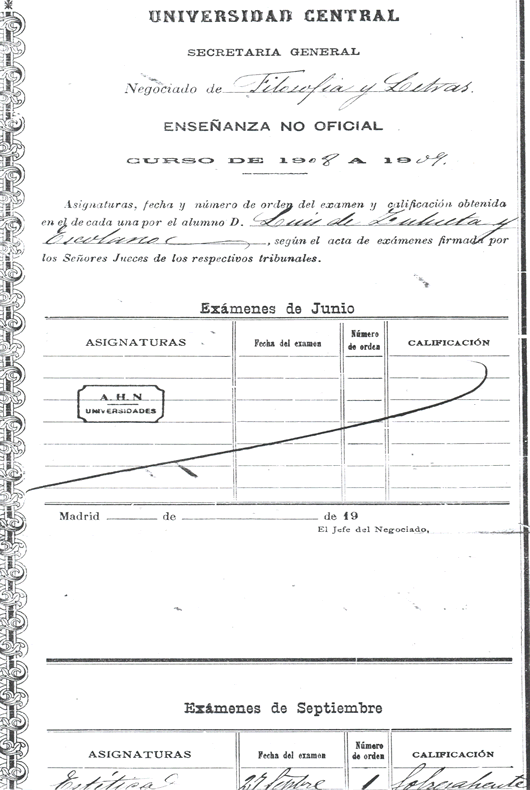 UNIVERSIDAD CENTRAL
SECRETARIA GENERAL
Negociado de Filosofia y Letras.
ENSEÑANZA NO OFICIAL
CURSO DE 1908 A 1909.
Asignaturas, fecha y número de orden del examen y calificación obtenida
en el de cada una por el alumno D. Luis de Zulueta y
Escolano, según el acta de exámenes firmada por
los Señores Jueces de los respectivos tribunales.
Exámenes de Junio
ASIGNATURAS Fecha del examen Número de orden CALIFICACIÓN
A. H. N
UNIVERSIDADES
Madrid de de 19
El Jefe del Negociado,
Exámenes de Septiembre
ASIGNATURAS Fecha del examen Número de orden CALIFICACIÓN
Estética 27 1 Sobresaliente